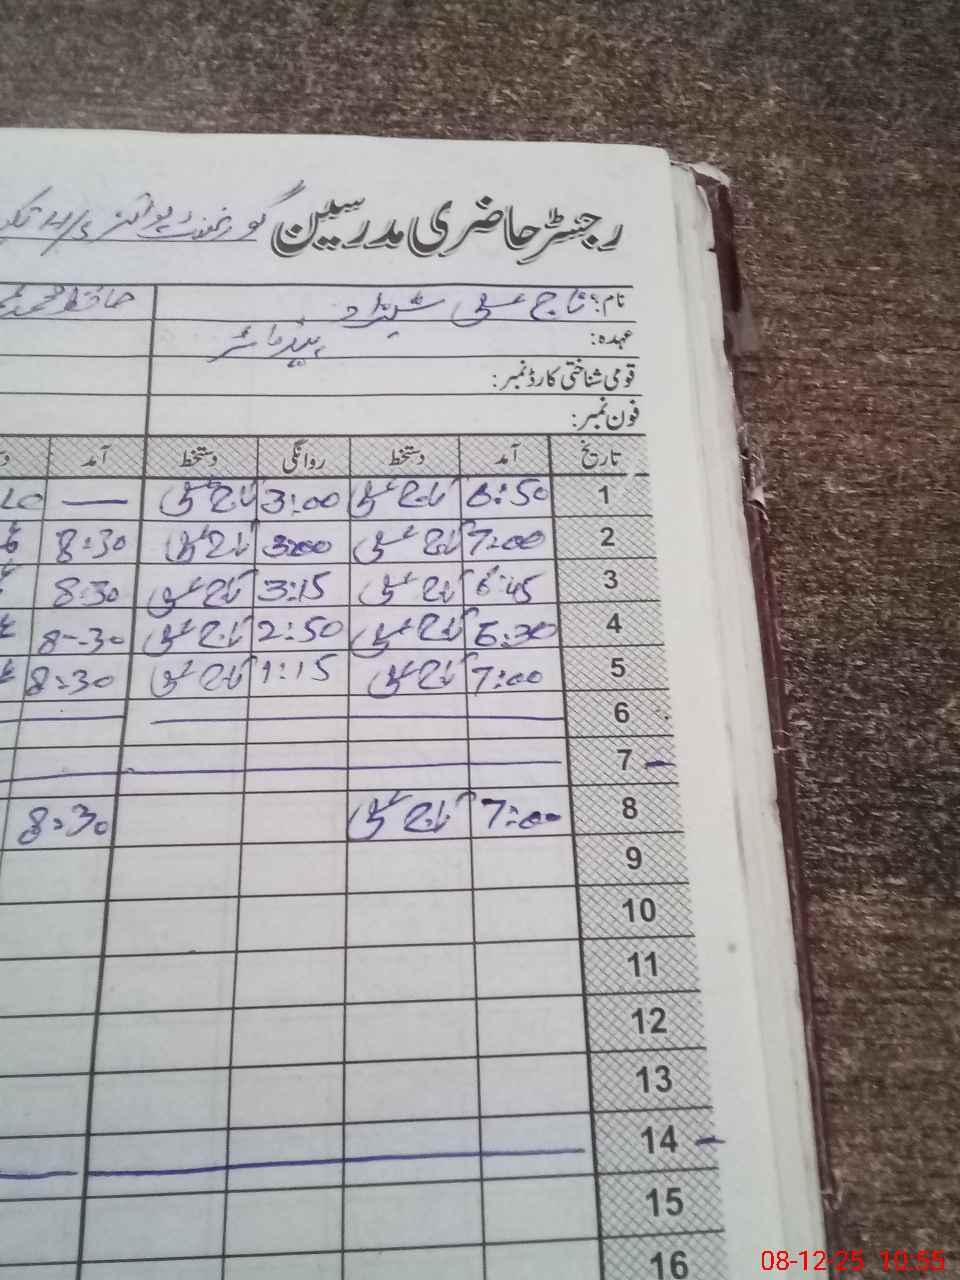 رجسٹر حاضری مدرسین گورنمنٹ
نام: تاج علی شہزاد
عہدہ: ہیڈ ماسٹر
قومی شناختی کارڈ نمبر:
فون نمبر:
تاریخ آمد دستخط روانگی دستخط آمد
1 6:50 تاج علی 3:00 تاج علی —
2 7:00 تاج علی 3:00 تاج علی 8:30
3 6:45 تاج علی 3:15 تاج علی 8:30
4 6:30 تاج علی 2:50 تاج علی 8:30
5 7:00 تاج علی 1:15 تاج علی 8:30
6
7 -
8 7:00 تاج علی 8:30
9
10
11
12
13
14 -
15
16
08-12-25 10:55